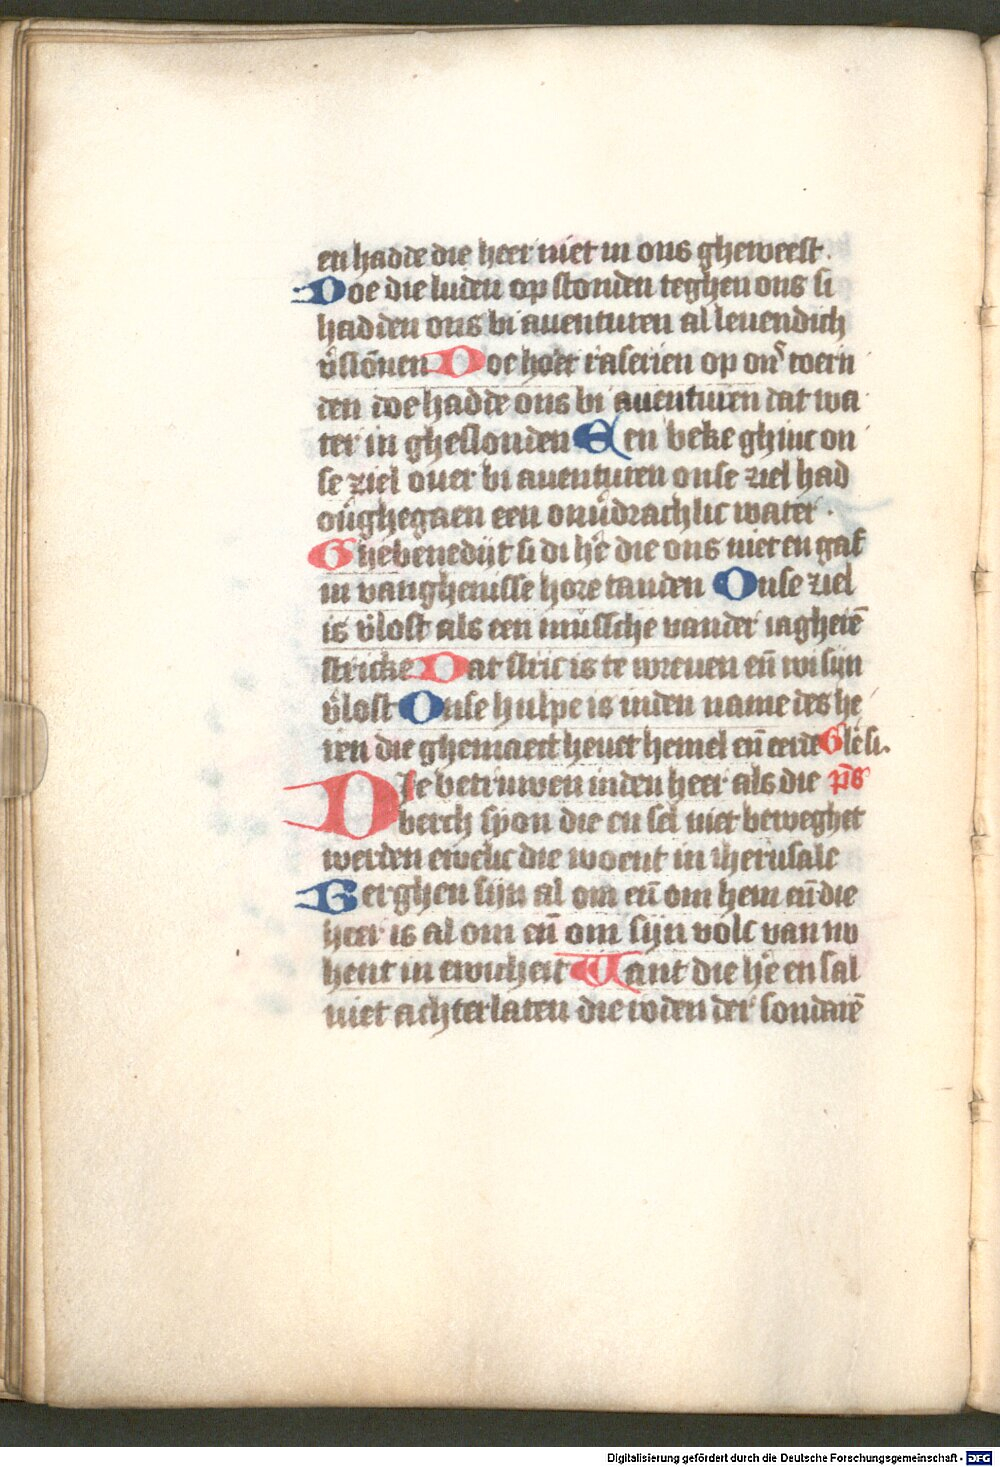 en hadde die heer niet in ons gheweest.
Doe die luden op stonden teghen ons si
hadden ons bi auenturen al leuendich
v̉slōnen Doe hoer raserien op ons toern
den doe hadde ons bi auenturen dat wa
ter in gheslonden Een beke ghinc on
se ziel ouer bi auenturen onse ziel had
oủghegaen een onủdrachlic water.
Ghebenedijt si di he᷑ die ons niet en gaf
in vanghenisse hore tanden Onse ziel
is v̉lost als een mussche vander iagherē
stricke Dat stric is te wreuen en̄ wi sijn
v̉lost Onse hulpe is inden name des he
ren die ghemaect heuet hemel en̄ eerde Gle si.
DJe betruwen inden heer als die p̄s
berch syon die en sel niet beweghet
werden ewelic die woent in iherusalē
Berghen sijn al om en̄ om hem en̄ die
heer is al om en̄ om sijn volc van nv
hent in ewicheit Want die he᷑ en sal
niet achterlaten die roden der sondarē
Digitalisierung gefördert durch die Deutsche Forschungsgemeinschaft - DFG